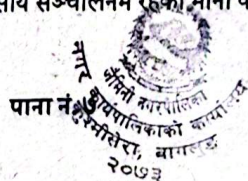 सञ्चालनमा रहेको मानी
पाना नं.
जैमिनी नगरपालिका
नगर कार्यपालिकाको कार्यालय
कुश्मीसेरा, बागलुङ
२०७३